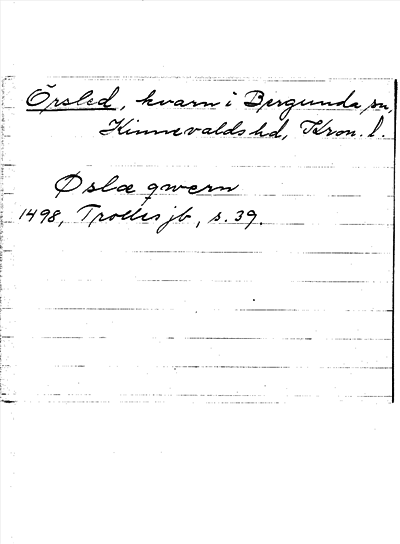 Örsled, kvarn i Bergunda sn,
Kinnevalds hd, Kron. l.
Øslæ qwern
1498, Trolles jb, s. 39.